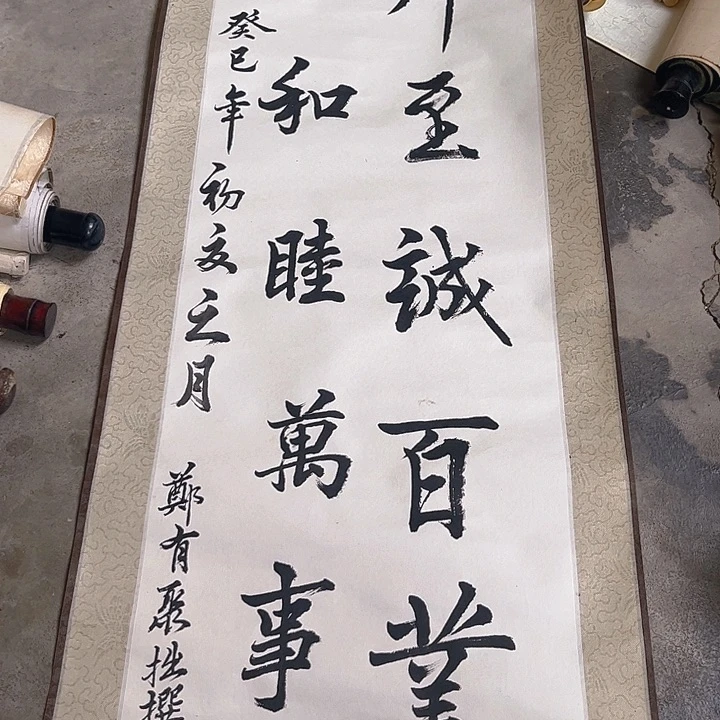 至誠百業
和睦萬事
癸巳年初夏之月 鄭有聚拙撰